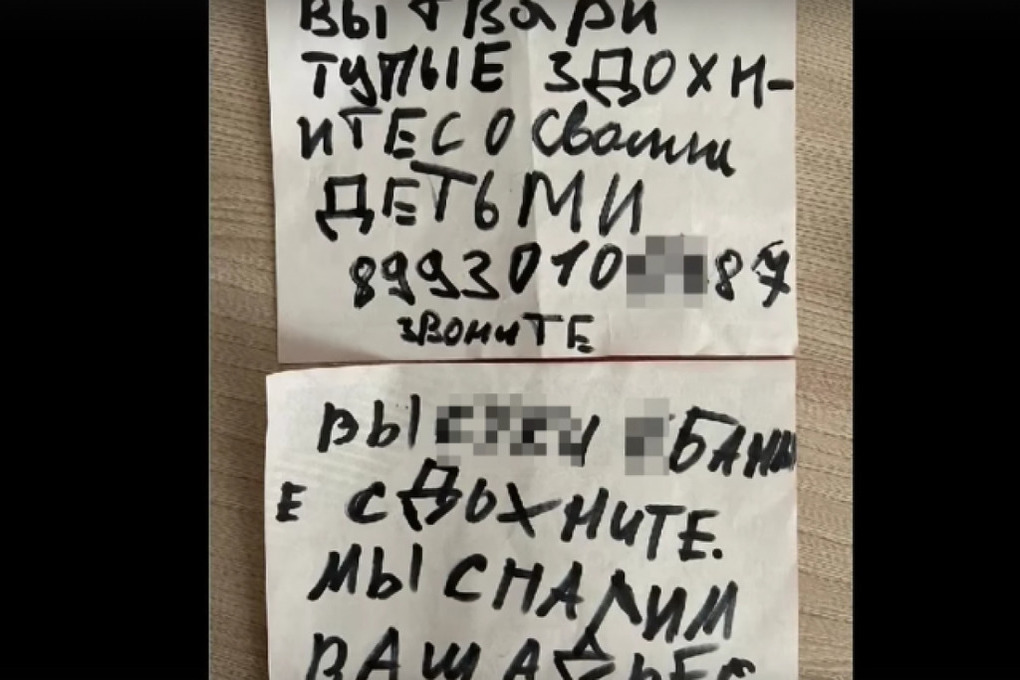 ВЫ ТВАРИ
ТУПЫЕ ЗДОХН-
ИТЕ СО Своими
ДЕТЬМИ
8993010 87
звоните
ВЫ
Е СДОХНИТЕ.
МЫ СПАЛИМ
ВАШ АДРЕС